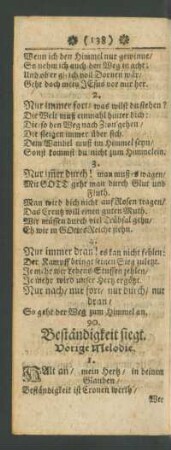 (138)
Wenn ich den Himmel nur gewinne/
So nehm ich auch den Weg in acht:
Und ob er gleich voll Dornen wär/
Geht doch mein JEsus vor mir her.
2.
Nur immer fort/ was wilst du stehen?
Die Welt muß einmahl hinter dich:
Die so den Weg nach Zion gehen/
Die steigen immer über sich.
Dein Wandel muß im Himmel seyn/
Sonst kommst du nicht zum Himmel ein.
3.
Nur immer durch! man muß es wagen/
Mit GOTT geht man durch Glut und
Fluth.
Man wird dich nicht auf Rosen tragen/
Das Creutz will einen guten Muth.
Wir müssen durch viel Trübsal gehn/
Eh wir in GOttes Reiche stehn.
4.
Nur immer dran! es kan nicht fehlen:
Der Kampff bringt einen Sieg zuletzt.
Je mehr wir Lebens-Stuffen zehlen/
Je mehr wird unser Hertz ergötzt.
Nur nach/ nur fort/ nur durch/ nur
dran/
So geht der Weg zum Himmel an.
90.
Beständigkeit siegt.
Vorige Melodie.
1.
HAlt an/ mein Hertz/ in deinem
Glauben/
Beständigkeit ist Cronen werth/
Wer